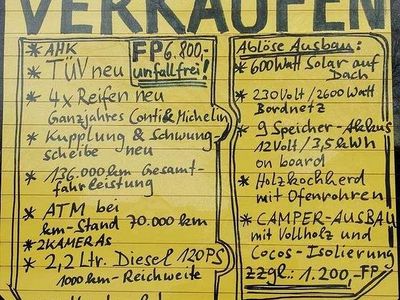 VERKAUFEN
* AHK
FP 6.800,-
* TÜV neu unfallfrei!
* 4x Reifen neu
Ganzjahres Conti & Michelin
* Kupplung & Schwung-
scheibe neu
* 136.000 km Gesamt-
fahrleistung
* ATM bei
km-Stand 70.000 km
* 2 KAMERAS
* 2,2 Ltr. Diesel 120PS
1000 km-Reichweite
Ablöse Ausbau:
* 600 Watt Solar auf
Dach
* 230 Volt / 2600 Watt
Bordnetz
* 9 Speicher-Akkus
12 Volt / 3,5 kWh
on board
* Holzkochherd
mit Ofenrohren
* CAMPER-AUSBAU
mit Vollholz und
Cocos-Isolierung
zzgl.: 1.200,-FP